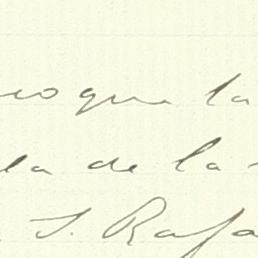 que la
la de la
S. Rafa